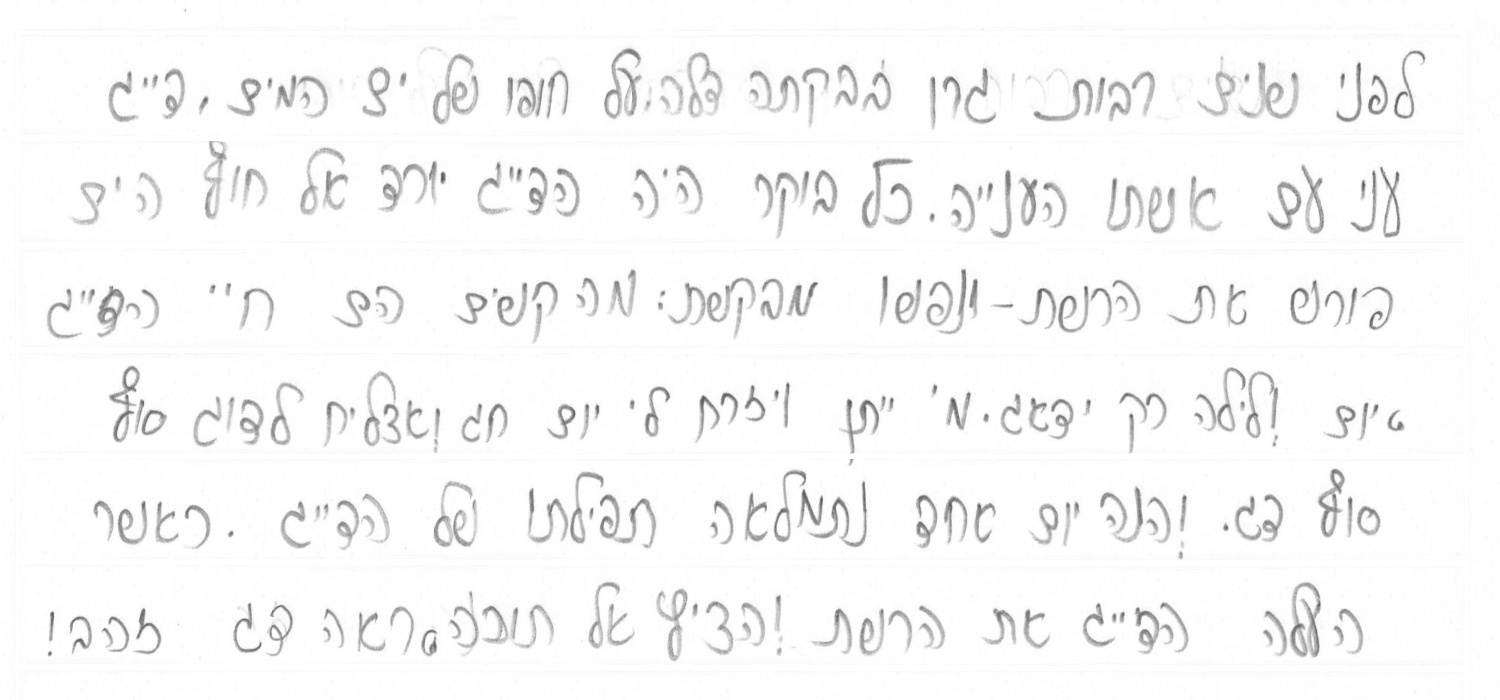 לפני שנים רבות גרו בבקתה דלה, על חופו של ים המים, דייג
עני עם אשתו הענייה. כל בוקר היה הדייג יורד אל חוף הים
פורש את הרשת – ונפשו מבקשת: מה קשים הם חיי הדייג
יום ולילה רק ידאג. מי ייתן ויזרח לי יום חג ואצליח לדוג סוף
סוף דג. והנה יום אחד נתמלאה תפילתו של הדייג. כאשר
העלה הדייג את הרשת והציץ אל תוכה, ראה דג זהב!